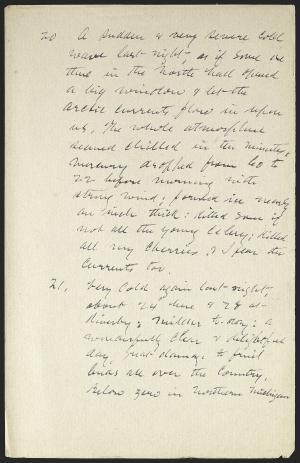 20 A sudden & very severe cold
wave last night, as if some one
up in the North had opened
a big window & let the
arctic currents flow in upon
us. The whole atmosphere
seemed chilled in ten minutes,
mercury dropped from 60 to
22 before morning with
strong wind; formed ice nearly
an inch thick: killed some if
not all the young celery; killed
all my cherries, & I fear the
currents too.
21, Very cold again last night,
about 24 here & 28 at
Riverby; milder to-day: a
wonderfully clear & delightful
day, Great damage to fruit
buds all over the country.
Below zero in northern Michigan